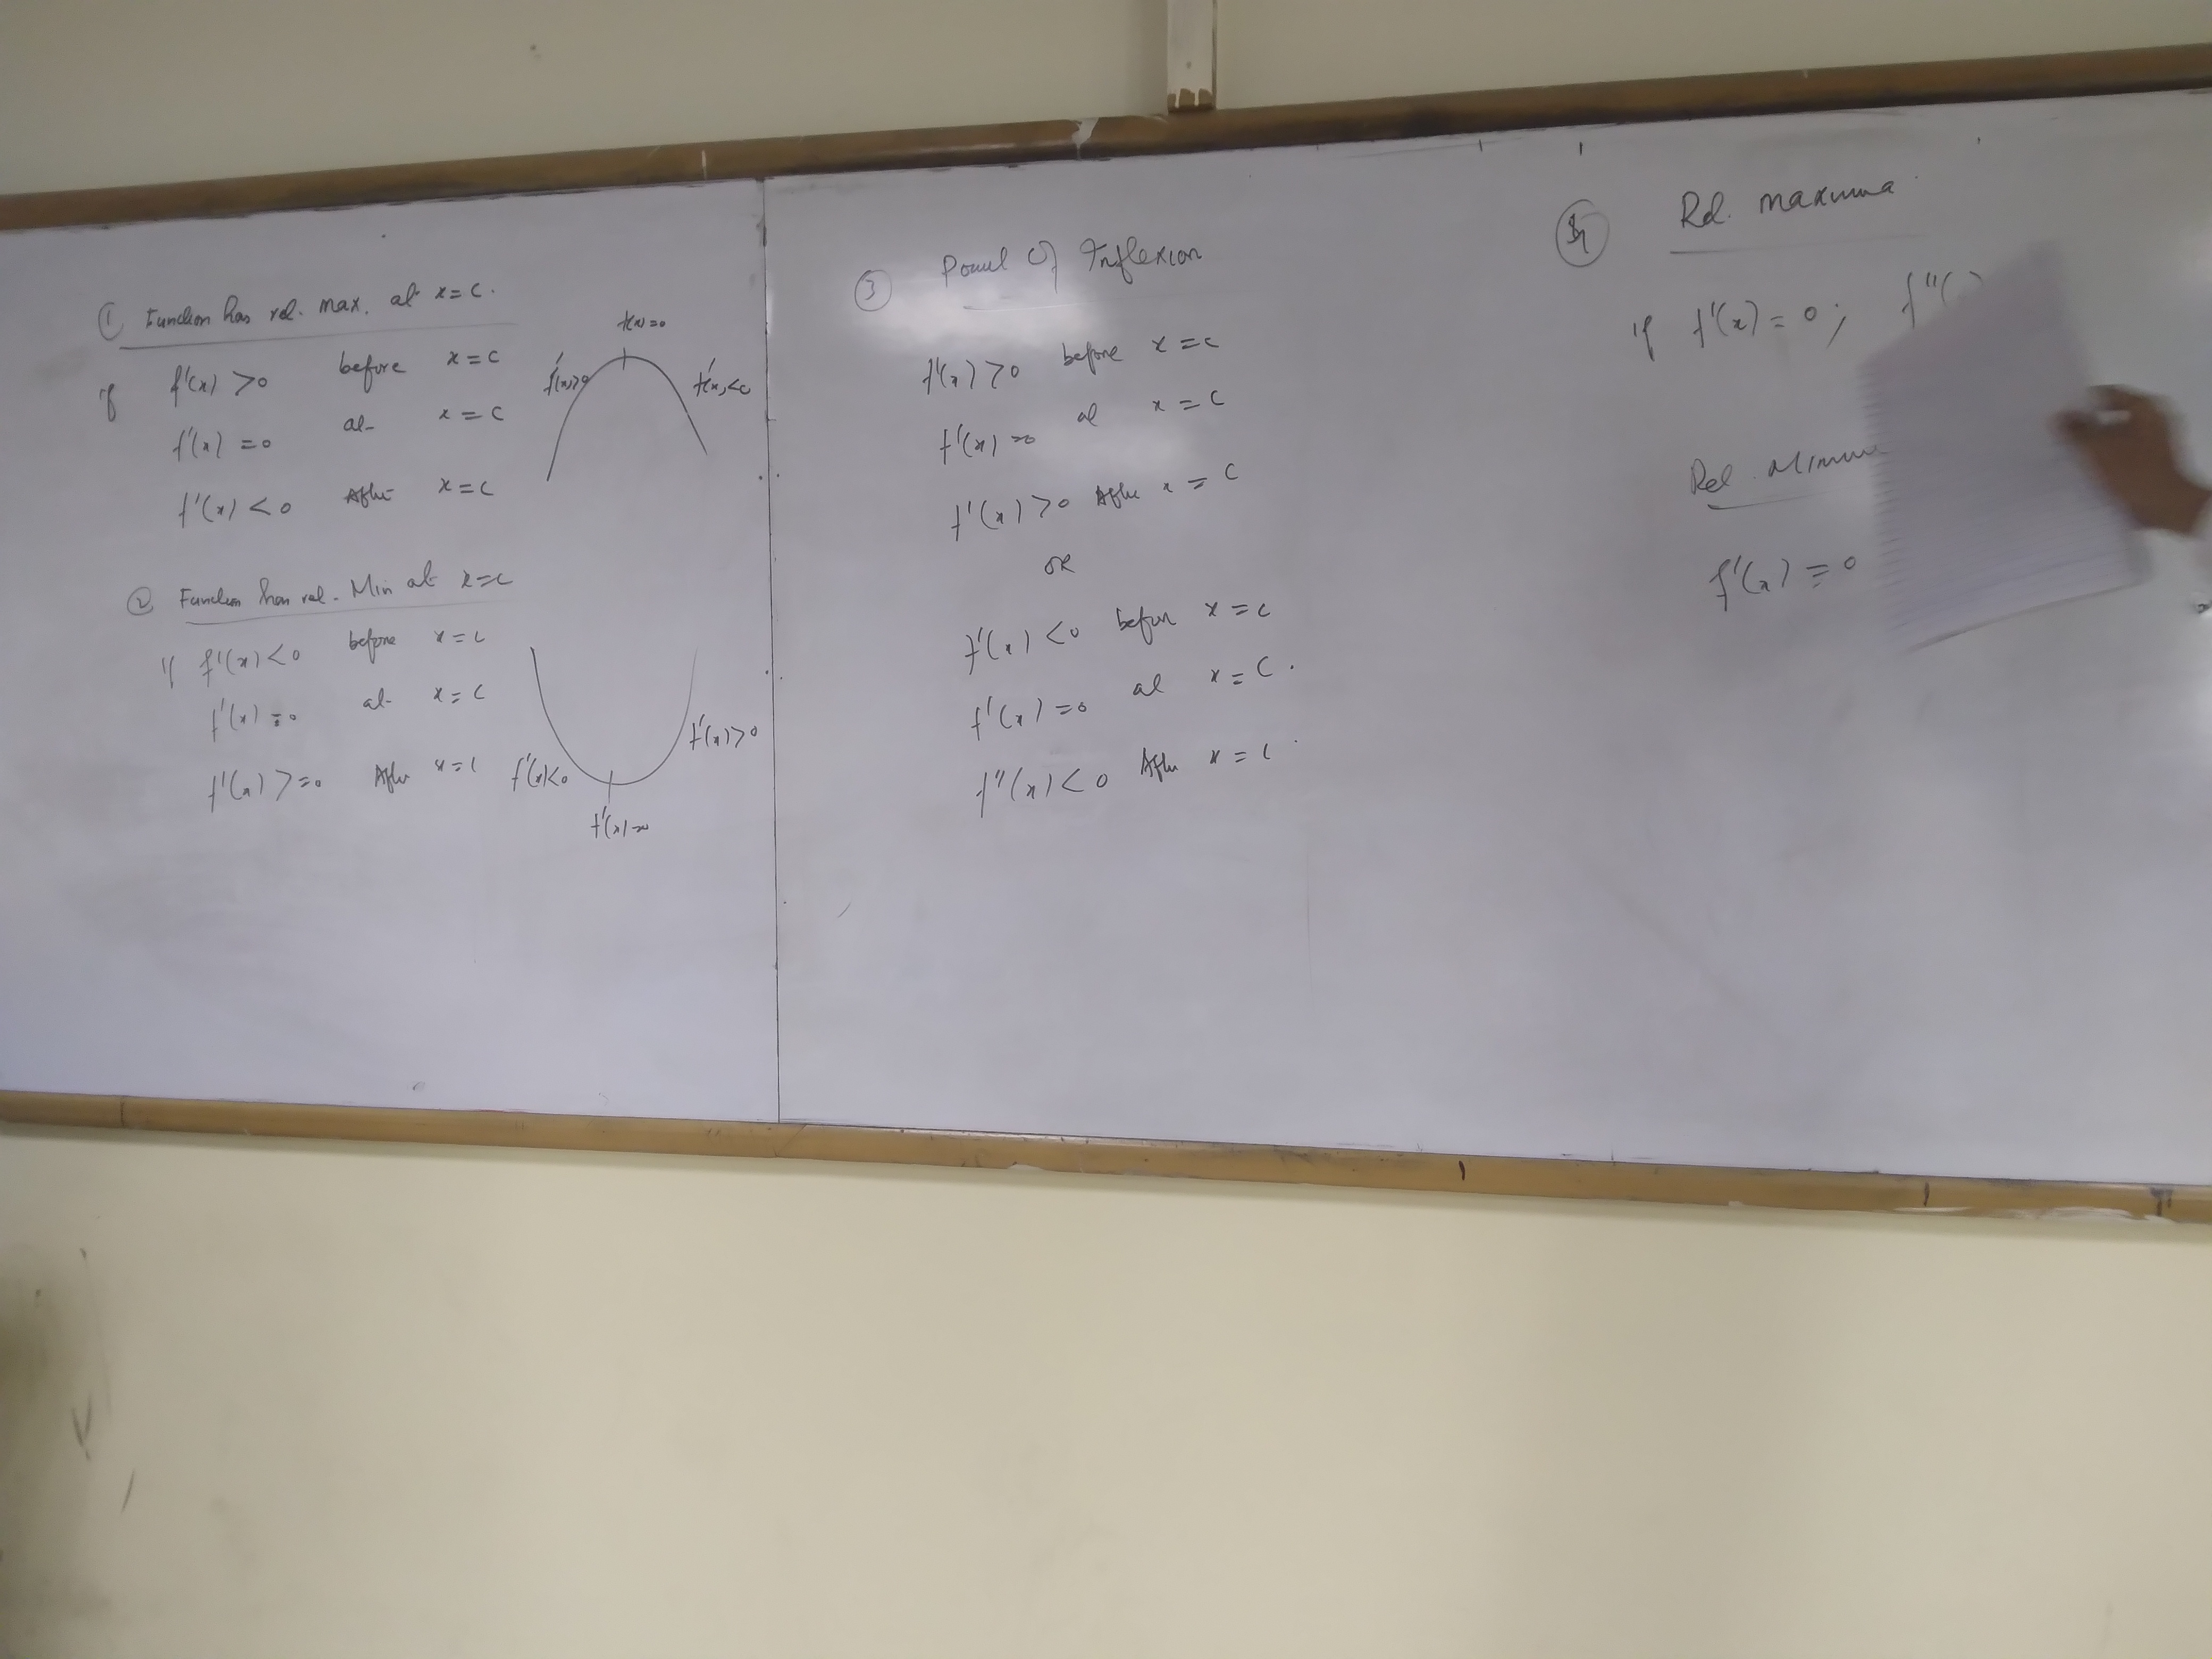 ① Function has rel. max. at x = c.
if f'(x) > 0 before x = c
f'(x) = 0 at x = c
f'(x) < 0 After x = c
f(x) = 0
f'(x) > 0
f'(x) < 0
② Function has rel. Min at x = c
if f'(x) < 0 before x = c
f'(x) = 0 at x = c
f'(x) > = 0 After x = c
f'(x) < 0
f'(x) = 0
f'(x) > 0
③ Point of Inflexion
f'(x) > 0 before x = c
f'(x) = 0 at x = c
f'(x) > 0 After x = c
OR
f'(x) < 0 before x = c
f'(x) = 0 at x = c.
f''(x) < 0 After x = c
Rel. maxima
if f'(x) = 0 ; f''(
Rel. Minim
f'(x) = 0